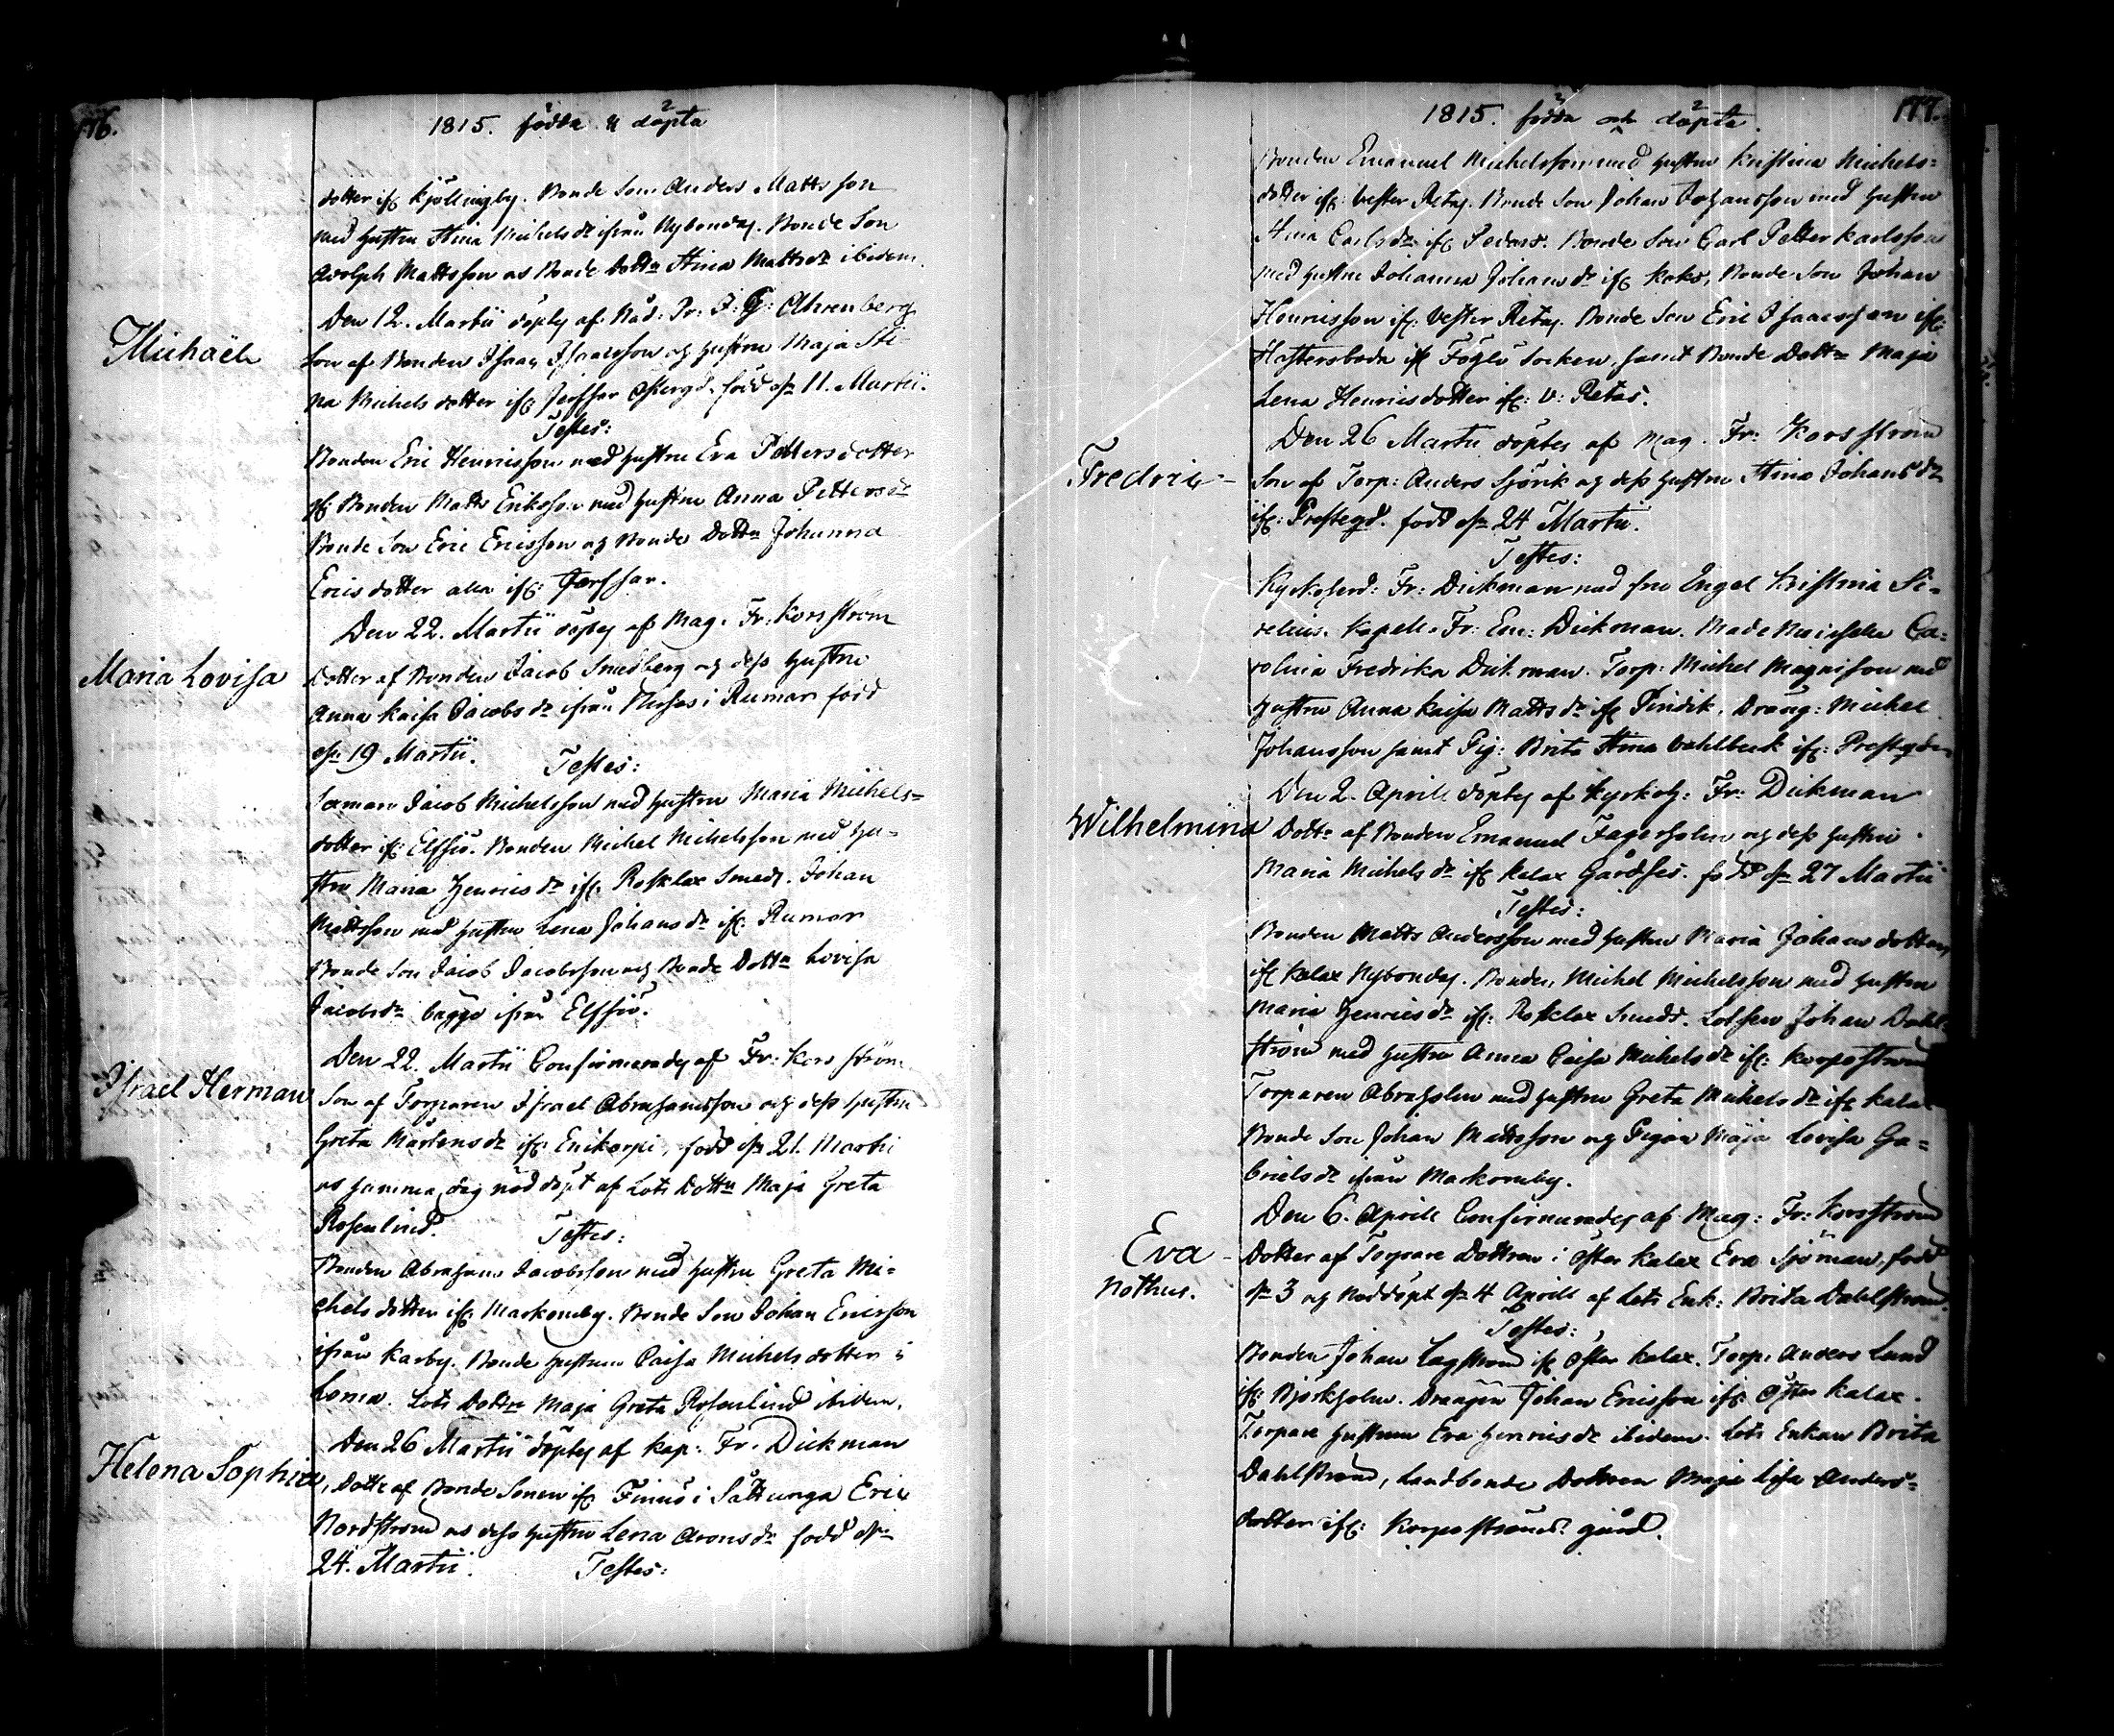 176.
1815. födde & döpta
dotter ifr Kjöllingby. Bonde Son Anders Mattsson
med hustru Stina Michelsdr ifrån Nybondas. Bonde Son
Adolph Mattsson as Bonde Dottn Stina Mattsdr ibidem.
Michaël
Den 12. Martii döptes af Nåd. Pr: J: G: Ahrenberg
Son af Bonden Isaac Isaacsson og hustru Maja Sti-
na Michels dotter ifr Jerssor född d. 11. Martii.
Testes:
Bonden Eric Henricsson med hustru Eva Pettersdotter
Bonden Matts Eriksson med hustru Anna Pettersdr
Bonde Son Eric Ericsson og Bonde Dottn Johanna
Ericsdotter alla ifr: Jerssor.
Maria Lovisa
Den 22. Martii döptes af Mag. Fr: Korsström
Dotter af Bonden Jacob Smedberg og dess hustru
Anna Kaisa Jacobsdr ifrån Nisses i Rumar född
d. 19 Martii.
Testes:
Jacob Michelsson med hustru Maria Michels=
dotter ifr: Elfsjö. Bonden Michel Michelsson med hu-
stru Maria Henricsdr ifr: Rosklax Smeds. Johan
Mattsson med hustru Lena Johansdr ifr: Rumar
Bonde Son Jacob Jacobsson og Bonde Dottn Lovisa
Jacobsdr bägge ifrån Elfsjö.
Israel Herman
Den 22. Martii Confirmerades af Fr: Korsström
Son af Torparen Israel Abrahamsson og dess hustru
Greta Mårtensdr ifr: född d. 21. Martii
as samma dag nöddöpt af Lots Dottn Maja Greta
Rosenlind.
Testes:
Bonden Abraham Jacobsson med hustru Greta Mi-
chels dotter ifr: Markomby. Bonde Son Johan Ericsson
ifrån Karby. Bonde hustrun Caisa Michelsdotter i
Loma. Lots Dottn Maja Greta Rosenlind ibidem.
Helena Sophia
Den 26 Martii döptes af Kap: Fr. Dickman
Dottr af Bonde Sonen ifr Finnö i Sättunga Eric
Nordström as dess hustru Lena Aronsdr född d.
24. Martii.
Testes:
177.
1815. födde och döpta.
Bonden Emanuel Michelsson med hustru Kristina Michels=
dotter ifr: Vester Retas. Bonde Son Johan Johansson med hustru
Stina Carlsdr ifr Bonde Son Carl Petter Karlsson
med hustru Johanna Johansdr ifr Bonde Son Johan
Henricsson ifr: Vester Retas. Bonde Son Eric Isaacsson ifr:
Hastersboda ifr Föglö Socken, samt Bonde Dottn Maja
Lena Henricsdotter ifr: V: Retas.
Fredric -
Den 26 Martii döptes af Mag. Fr: Korsström
Son af Torp: Anders Sjövik og dess hustru Stina Johansdr
ifr: Prestegd. född d. 24 Martii.
Testes:
Kyrkoherd: Fr: Dickman med fru Engel Kristina Si-
delius. Kapell. Fr: Em: Dickman. Mademoiselle Ca=
rolina Fredrika Dickman. Torp: Michel Magnisson med
hustru Anna Kaisa Mattsdr ifr Dräng: Michel
Johansson samt Pig: Brita Stina Vahlbeck ifr: Prestgden
Wilhelmina
Den 2. Aprill döptes af Kyrkoh: Fr: Dickman
Dottr af Bonden Emanuel Fagerholm og dess hustru
Maria Michelsdr ifr Kalax Gårdses. född d. 27 Martii
Testes:
Bonden Matts Andersson med hustru Maria Johansdotter
ifr Kalax Nybondas. Bonden Michel Michelsson med hustru
Maria Henricsdr ifr: Rosklax Smeds. Lotsen Johan Dahl=
ström med hustru Anna Caisa Michelsdr ifr: Korpoström
Torparen Abraholm med hustru Greta Michelsdr ifr Kalax
Bonde Son Johan Mattsson og Pigan Maja Lovisa Ga=
brielsdr ifrån Markomby.
Eva -
Nothus.
Den 6. Aprill Confirmerades af Mag: Fr: Korsström
Dotter af Torpare Dottren i Öster Kalax Eva Sjöman, född
d. 3 og Nöddöpt d. 4 Aprill af Lots Enk: Brita Dahlström.
Testes:
Bonden Johan Lagström ifr Öster Kalax. Torp. Anders Lund
ifr: Björkholm. Drängen Johan Ericsson ifr: Öster Kalax.
Torpare hustrun Eva Henricsdr ibidem. Lots Enkan Brita
Dahlström, Landbonde Dottren Maja Lisa Anders=
dotter ifr: Korpoströms gård.